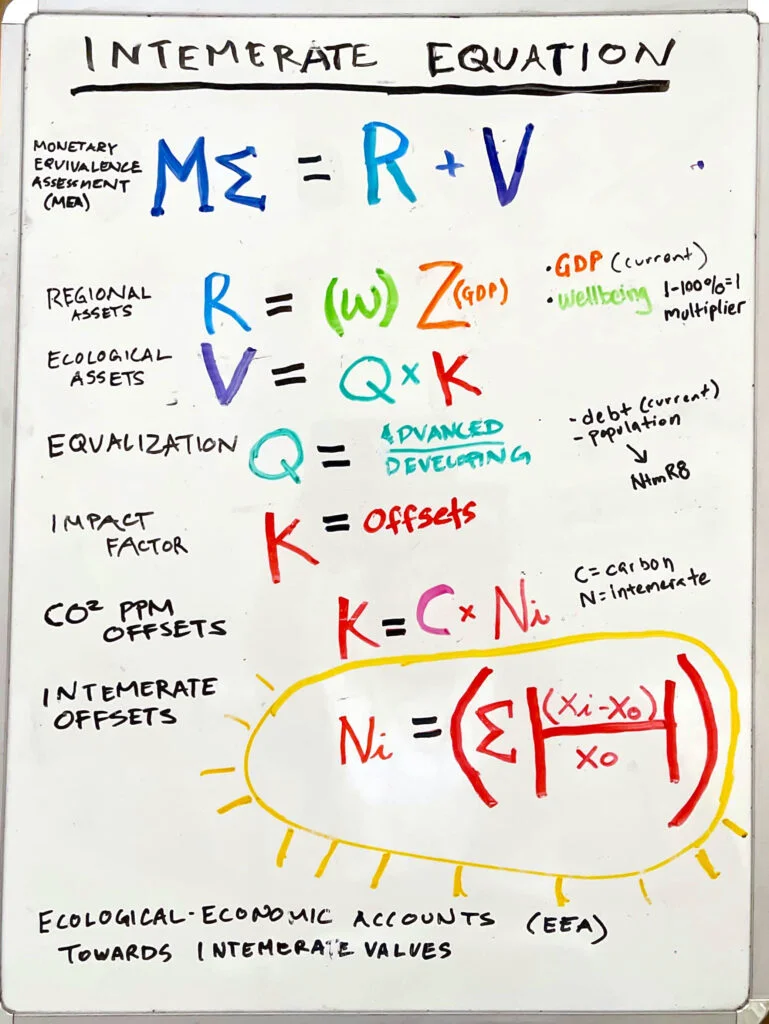 INTEMERATE EQUATION
MONETARY
EQUIVALENCE
ASSESSMENT
(MEA)
MΣ = R + V
REGIONAL
ASSETS
R = (W) Z(GDP)
• GDP (current)
• Wellbeing 1-100%=1
multiplier
ECOLOGICAL
ASSETS
V = Q × K
EQUALIZATION
Q = ADVANCED
DEVELOPING
- debt (current)
- population
↘
N4mR8
IMPACT
FACTOR
K = Offsets
CO² PPM
OFFSETS
K = C × Ni
C = carbon
N = intemerate
INTEMERATE
OFFSETS
Ni = (Σ |(Xi - X0)
X0|)
ECOLOGICAL-ECONOMIC ACCOUNTS (EEA)
TOWARDS INTEMERATE VALUES